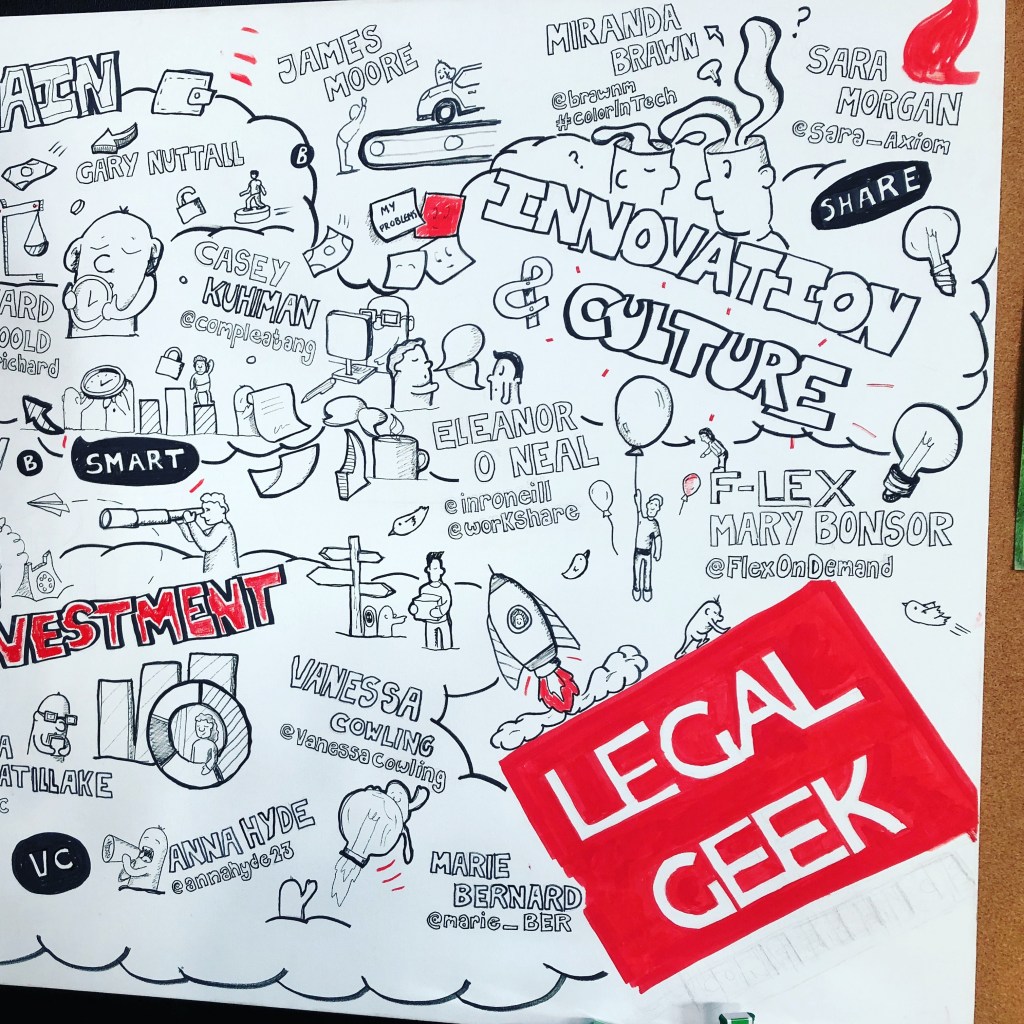 AIN
GARY NUTTALL
B
JAMES
MOORE
MY
PROBLEMS
MIRANDA
BRAWN
@brawnm
#colorInTech
?
?
SARA
MORGAN
@sara_Axiom
SHARE
INNOVATION
&
CULTURE
ARD
OOLD
richard
CASEY
KUHlMAN
@compleatang
B
SMART
ELEANOR
O NEAL
@inroneill
@workshare
F-LEX
MARY BONSOR
@FlexOnDemand
VESTMENT
VANESSA
COWLING
@VanessaCowling
A
ATILLAKE
C
VC
ANNA HYDE
@annahyde23
MARIE
BERNARD
@marie_BER
LEGAL
GEEK